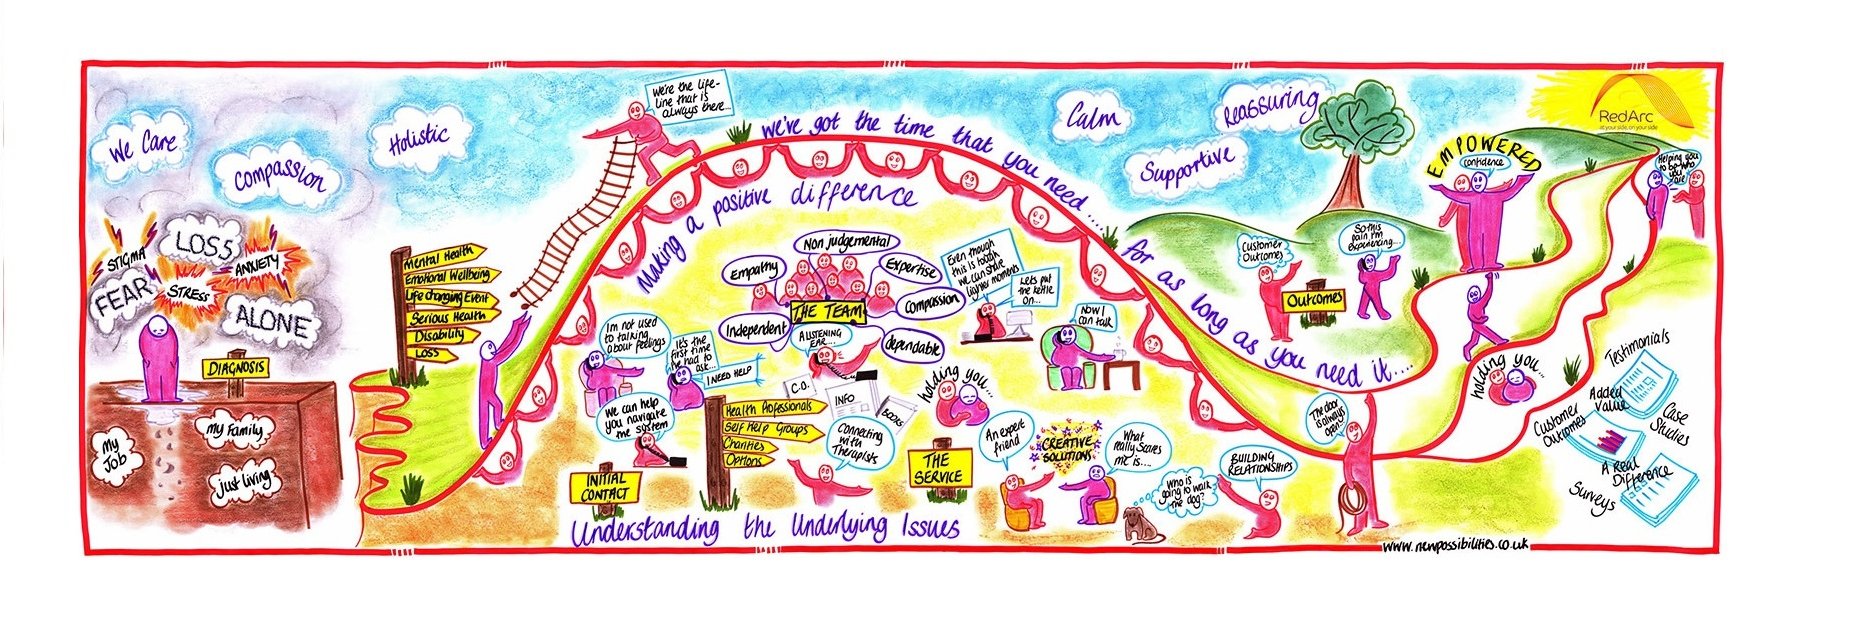 We Care
Compassion
Holistic
We're the life-
line that is
always there...
we've got the time that you need.... for as long as you need it....
Making a positive difference
Calm
Reassuring
Supportive
RedArc
at your side, on your side
EMPOWERED
confidence
Helping you
to be who
you are
STIGMA
LOSS
ANXIETY
FEAR
STRESS
ALONE
DIAGNOSIS
My
Job
My Family
Just living
Mental Health
Emotional Wellbeing
Life changing Event
Serious Health
Disability
LOSS
Non judgemental
Empathy
Expertise
Compassion
THE TEAM
Independent
dependable
A LISTENING
EAR...
Even though
this is tough
we can share
lighter moments
Lets put
the kettle
on...
Now I
can talk
I'm not used
to talking
about feelings
It's the
first time
I've had to
ask...
I NEED HELP
We can help
you navigate
the system
INITIAL
CONTACT
Health Professionals
Self Help Groups
Charities
Options
C.O.
INFO
BOOKS
Connecting
with
Therapists
holding you...
THE
SERVICE
An expert
friend
CREATIVE
SOLUTIONS
What
really scares
me is....
Who is
going to walk
the dog?
BUILDING
RELATIONSHIPS
Understanding the Underlying Issues
Customer
Outcomes
Outcomes
So this
pain I'm
experiencing...
The door
is always
open!
holding you...
Testimonials
Added
Value
Customer
Outcomes
Case
Studies
A Real
Difference
Surveys
www.newpossibilities.co.uk